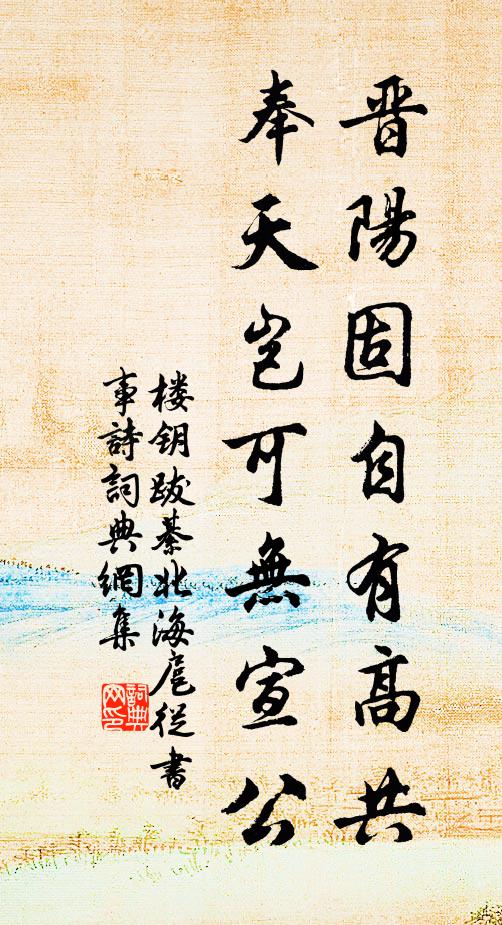 晋陽固自有高共
奉天岂可無宣公
楼钥跋綦北海扈從書
事詩詞典網集
詞典网印